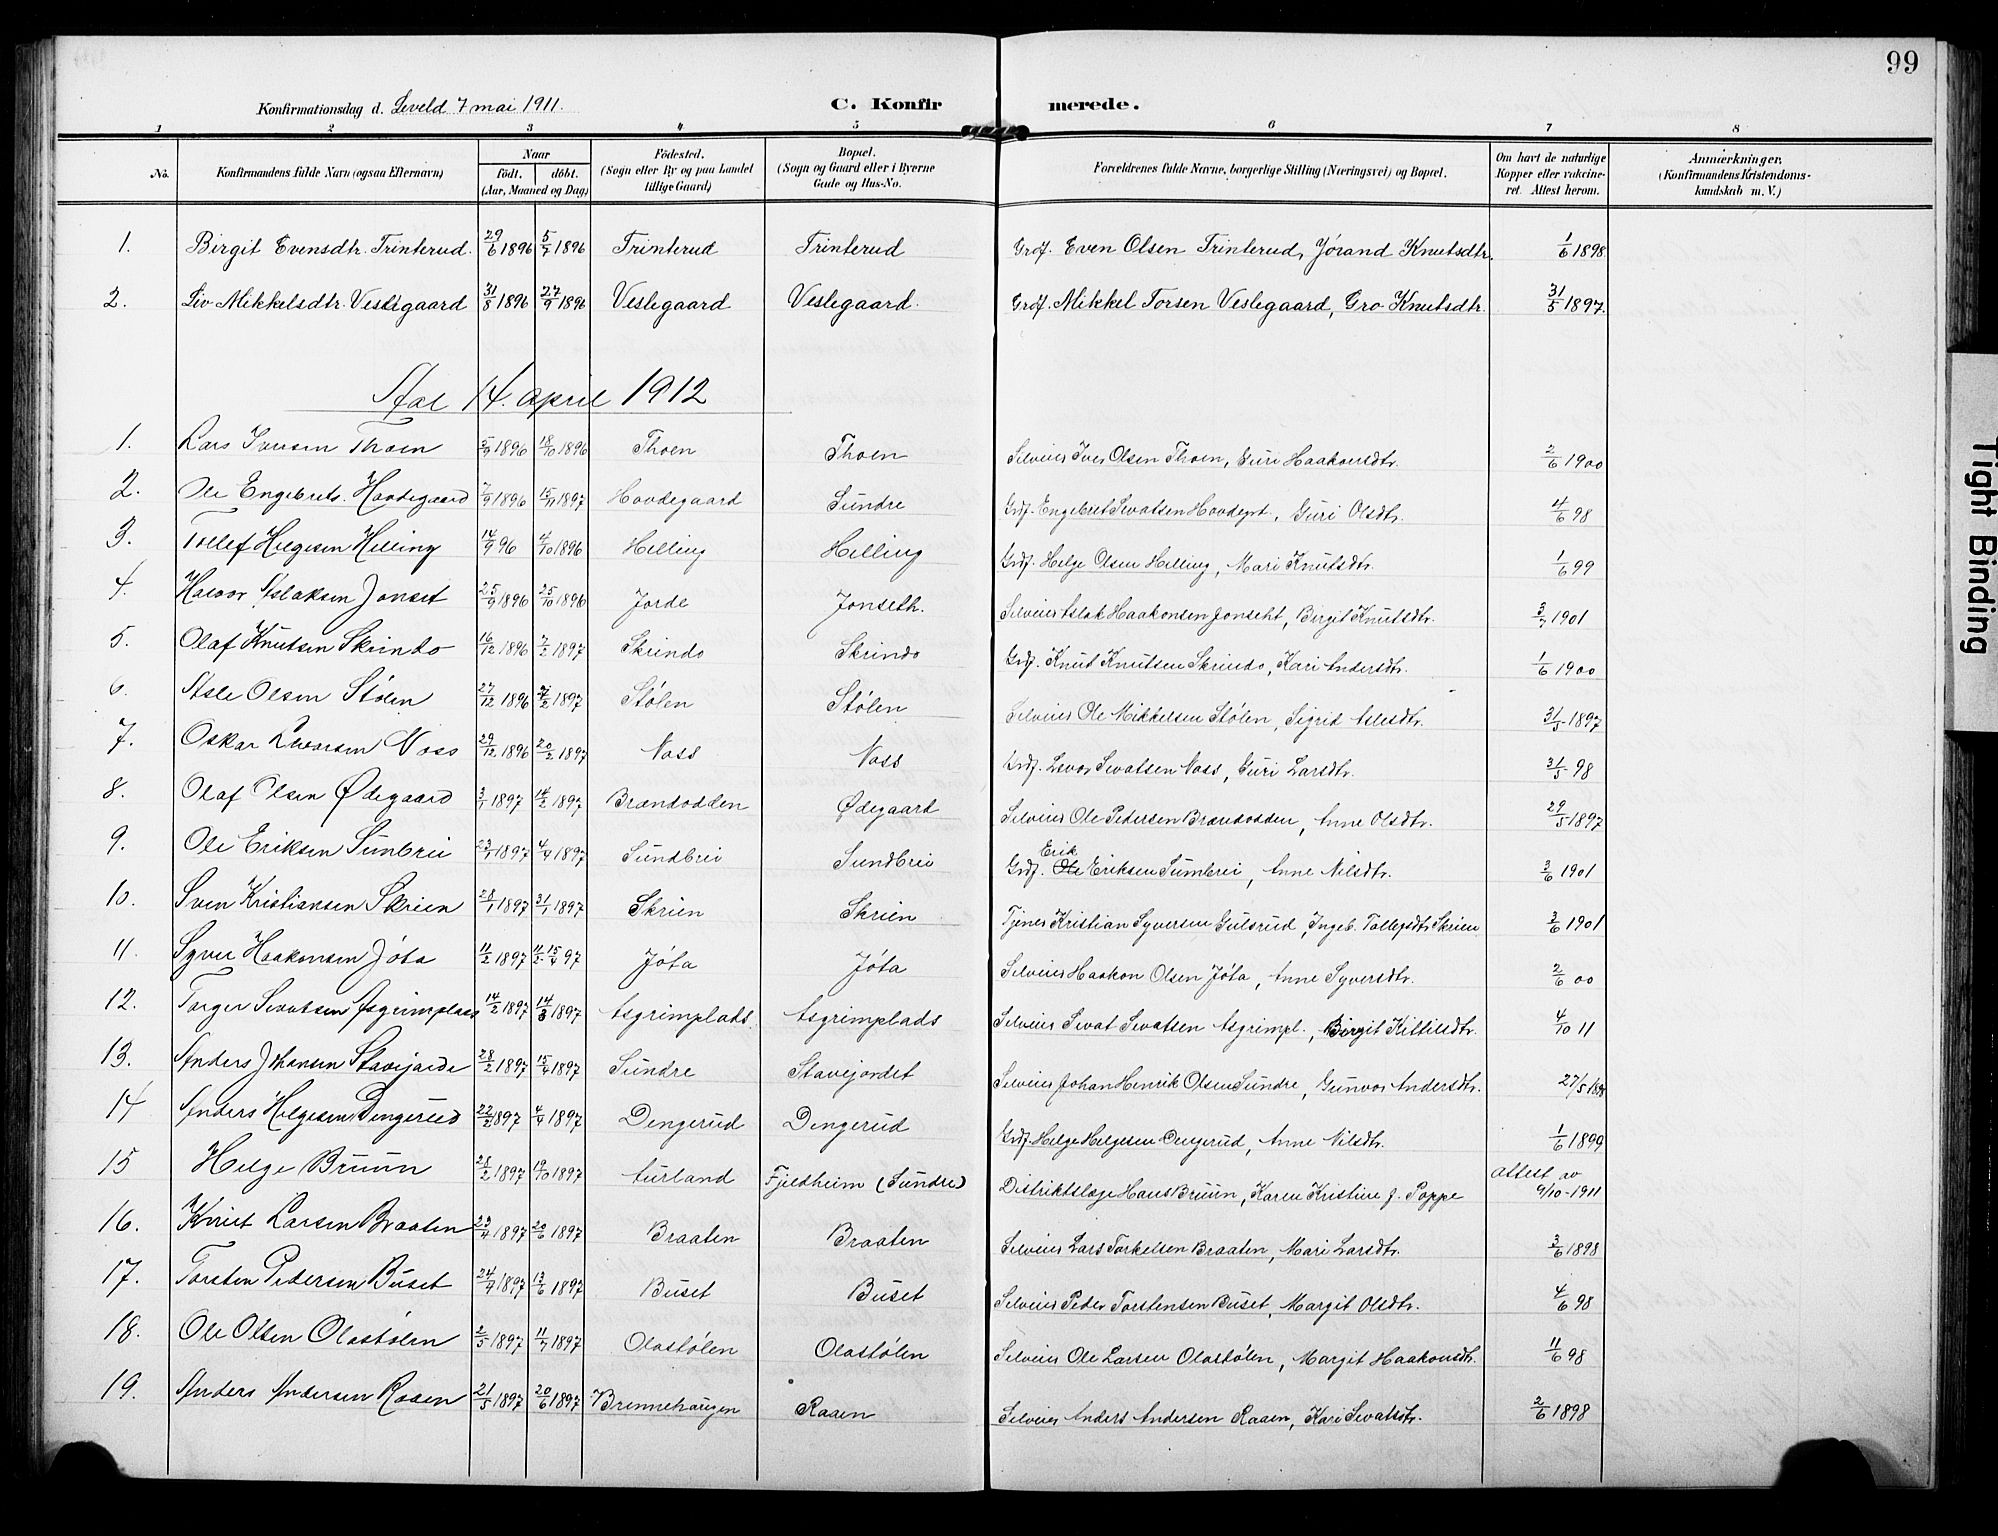 99
Konfirmationsdag d. Leveld 7 mai 1911. C. Konfirmerede.
1 2 3 4 5 6 7 8
No. Konfirmandens fulde Navn (ogsaa Efternavn) Naar født. døbt. (Aar, Maaned og Dag) Fødested. (Sogn eller By og paa Landet tillige Gaard) Bopæl. (Sogn og Gaard eller i Byerne Gade og Hus-No. Forældrenes fulde Navne, borgerlige Stilling (Næringsvei) og Bopæl. Om havt de naturlige Kopper eller vakcineret. Attest herom. Anmærkninger, (Konfirmandens Kristendomskundskab m. V.)
1. Birgit Evensdtr. Trinterud. 29/6 1896 5/7 1896 Trinterud Trinterud Grdf. Even Olsen Trinterud, Jørand Knutsdtr. 1/6 1898
2. Liv Mikkelsdtr. Veslegaard 31/8 1896 27/9 1896 Veslegaard Veslegaard. Grdf. Mikkel Torsen Veslegaard, Gro Knutsdtr. 31/5 1897.
Aal 14. april 1912
1. Lars Iversen Thoen 5/9 1896 18/10 1896 Thoen Thoen Selveier Iver Olsen Thoen, Guri Haakonsdtr. 2/6 1900
2. Ole Engebrets. Hovdegaard 7/9 1896 15/11 1897 Hovdegaard Sundre Grdf. Engebret Sevatsen Hovdegrd., Guri Olsdtr. 4/6 98
3. Tollef Helgesen Helling 14/9 96 4/10 1896 Helling Helling Grdf. Helge Olsen Helling, Mari Knutsdtr. 1/6 99
4. Halvor Aslaksen Jonset 25/9 1896 25/10 1896 Jorde Jonseth. Selveier Aslak Haakonsen Jonseht, Birgit Knutsdtr. 3/7 1901
5. Olaf Knutsen Skrindo 16/12 1896 7/2 1897 Skrindo Skrindo Grdf. Knut Knutsen Skrindo, Kari Andersdtr. 1/6 1900
6. Asle Olsen Stølen 27/12 1896 7/2 1897 Stølen Stølen Selveier Ole Mikkelsen Stølen, Sigrid Aslesdtr. 31/5 1897
7. Oskar Levorsen Noss 29/12 1896 20/2 1897 Noss Noss Grdf. Levor Sevatsen Noss, Guri Larsdtr. 31/5 98
8. Olaf Olsen Ødegaard 3/1 1897 14/2 1897 Brændodden Ødegaard Selveier Ole Pedersen Brændodden, Anne Olsdtr. 29/5 1897
9. Ole Eriksen Sunbrei 23/1 1897 4/4 1897 Sundbrei Sundbrei Grdf. Ole Erik Eriksen Sumbrei, Anne Nilsdtr. 3/6 1901
10. Sven Kristiansen Skrien 28/1 1897 31/1 1897 Skrien Skrien Tjener Kristian Syversen Gulsrud, Ingeb. Tollefsdtr Skrien 3/6 1901
11. Syver Haakonsen Jøta 11/2 1897 11/2. 15/4 97 Jøta Jøta Selveier Haakon Olsen Jøta, Anne Syversdtr. 2/6 00
12. Torger Sevatsen Asgrimplads 14/2 1897 14/3 1897 Asgrimplads. Asgrimplads Selveier Sevat Sevatsen Asgrimpl., Birgit Kittilsdtr. 4/10 11
13. Anders Johansen Stavejorde 28/2 1897 15/4 1897 Sundre Stavejordet Selveier Johan Henrik Olsen Sundre, Gunvor Andersdtr. 27/5 1898
14 Anders Helgesen Dengerud 22/2 1897 4/4 1897 Dengerud Dengerud Grdf. Helge Helgesen Dengerud, Anne Nilsdtr. 1/6 1899
15 Helge Bruun 28/2 1897 19/10 1897 Aurland Fjeldheim (Sundre) Distriktslæge Hans Bruun, Karen Kristine f. Poppe attest av 9/10-1911
16. Knut Larsen Braaten 23/4 1897 20/6 1897 Braaten Braaten Selveier Lars Torkelsen Braaten, Mari Larsdtr. 3/6 1898
17. Torsten Pedersen Buset 24/4 1897 13/6 1897 Buset Buset Selveier Peder Torstensen Buset, Margit Olsdtr. 4/6 98
18. Ole Olsen Olastølen 2/5 1897 11/7 1897 Olastølen Olastølen Selveier Ole Larsen Olastølen, Margit Haakonsdtr. 11/6 98
19. Anders Andersen Raaen 21/5 1897 20/6 1897 Brennehaugen Raaen Selveier Anders Andersen Raaen, Kari Sevatsdtr. 2/6 1898
Tight Binding